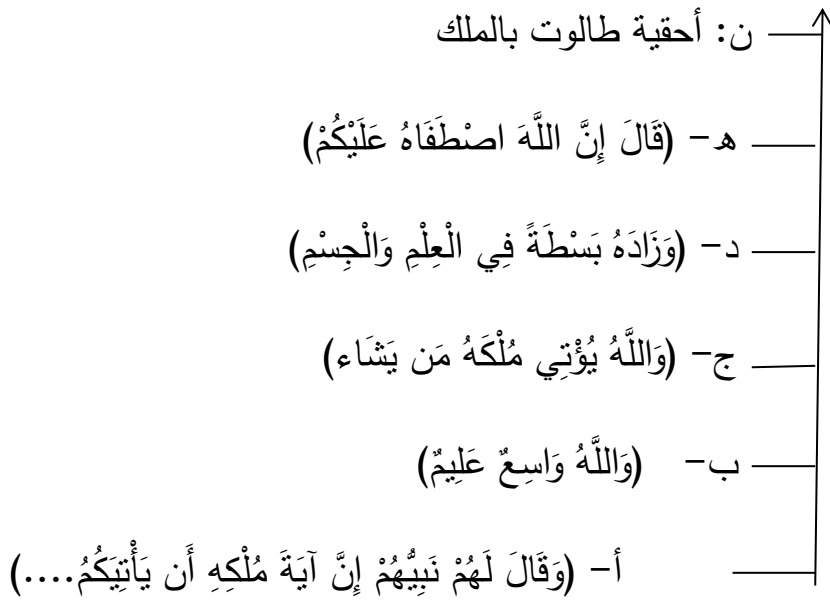 ن: أحقية طالوت بالملك
ه- (قَالَ إِنَّ اللَّهَ اصْطَفَاهُ عَلَيْكُمْ)
د- (وَزَادَهُ بَسْطَةً فِي الْعِلْمِ وَالْجِسْمِ)
ج- (وَاللَّهُ يُؤْتِي مُلْكَهُ مَن يَشَاء)
ب- (وَاللَّهُ وَاسِعٌ عَلِيمٌ)
أ- (وَقَالَ لَهُمْ نَبِيُّهُمْ إِنَّ آيَةَ مُلْكِهِ أَن يَأْتِيَكُمُ....)